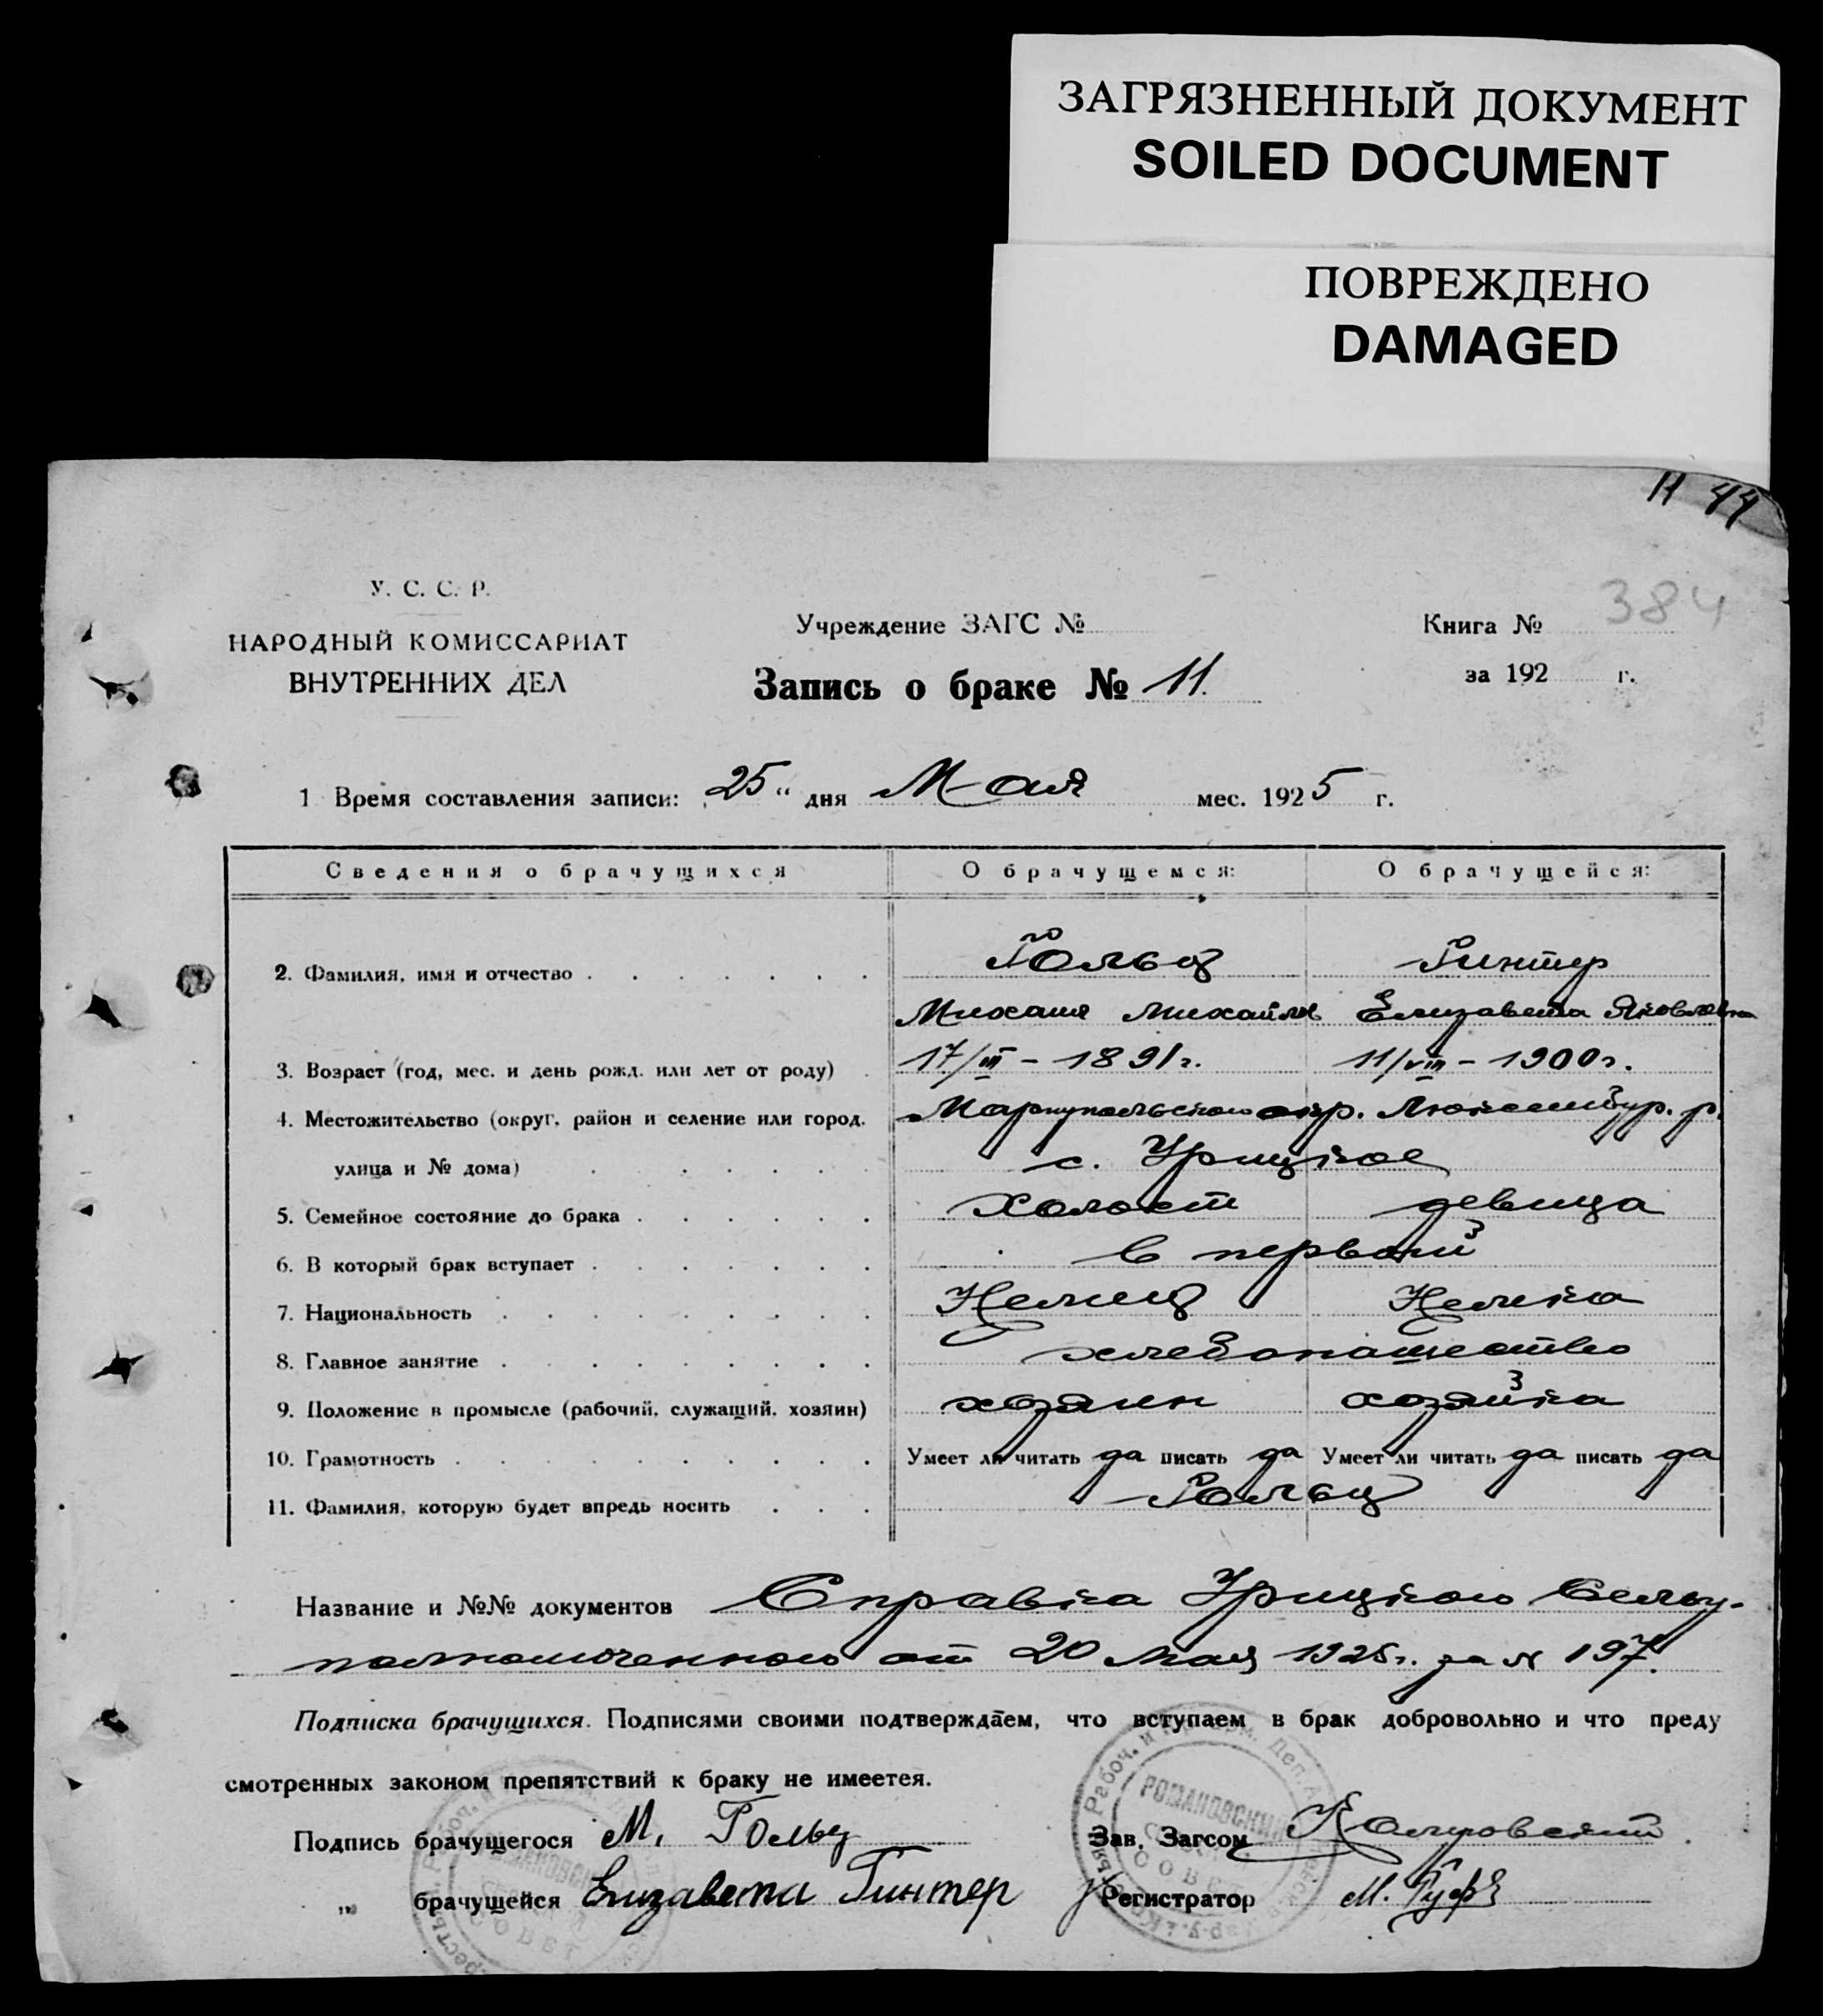 ЗАГРЯЗНЕННЫЙ ДОКУМЕНТ
SOILED DOCUMENT
ПОВРЕЖДЕНО
DAMAGED
Н 44
384
У. С. С. Р.
НАРОДНЫЙ КОМИССАРИАТ
ВНУТРЕННИХ ДЕЛ
Учреждение ЗАГС №
Запись о браке № 11.
Книга №
за 192 г.
1 Время составления записи: „25“ дня Мая мес. 1925 г.
Сведения о брачущихся О брачущемся: О брачущейся:
2. Фамилия, имя и отчество Гольц Гинтер
Михаил Михайлов Елизавета Яковлевна
3. Возраст (год, мес. и день рожд. или лет от роду) 17/III - 1891г. 11/VIII - 1900г.
4. Местожительство (округ, район и селение или город, Мариупольского окр. Люксембур. р.
улица и № дома) с. Урицкое
5. Семейное состояние до брака Холост девица
6. В который брак вступает в первый
7. Национальность Немец Немка
8. Главное занятие хлебопашество
9. Положение в промысле (рабочий, служащий, хозяин) хозяин хозяйка
10. Грамотность Умеет ли читать да писать да Умеет ли читать да писать да
11. Фамилия, которую будет впредь носить Гольц
Название и №№ документов Справка Урицкого Сельу-
полномоченного от 20 Мая 1925г. за № 197.
Подписка брачущихся. Подписями своими подтверждаем, что вступаем в брак добровольно и что преду
смотренных законом препятствий к браку не имеетея.
Подпись брачущегося М. Гольц
Зав. Загсом
„ брачущейся Елизавета Гинтер
Регистратор М.
РОМАНОВСКИЙ